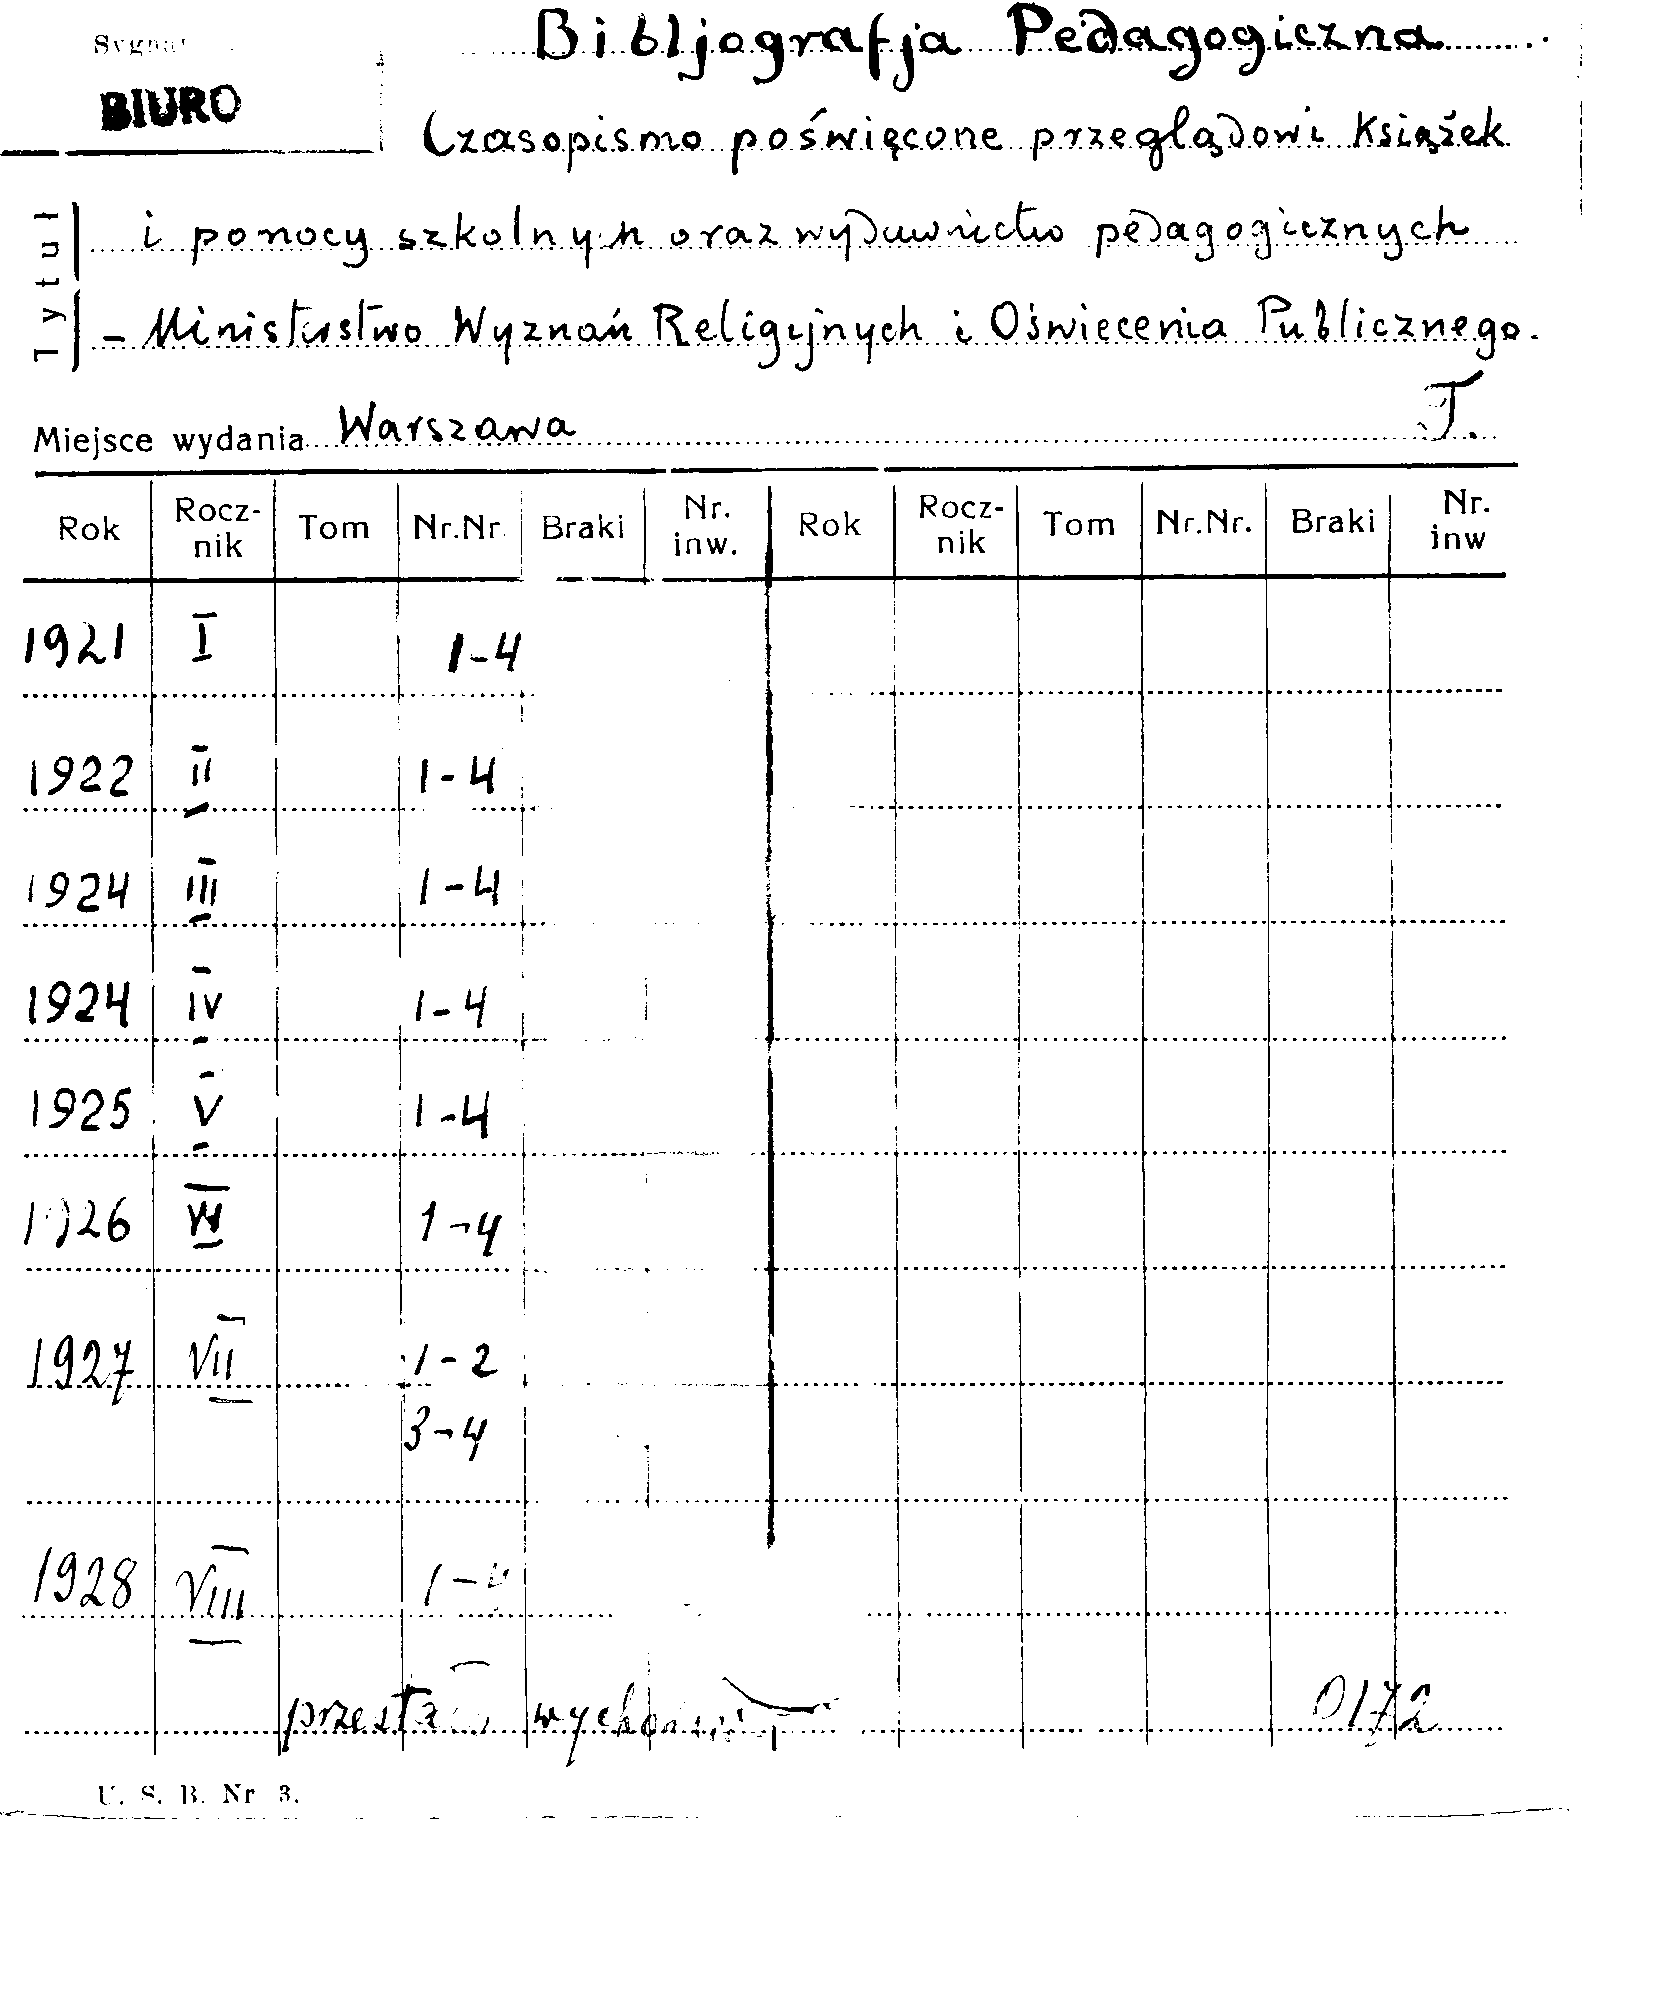 Sygnat
BIURO
Bibljografja Pedagogiczna
Czasopismo poświęcone przeglądowi książek
Tytuł
i pomocy szkolnych oraz wydawnictw pedagogicznych
- Ministerstwo Wyznań Religijnych i Oświecenia Publicznego.
Miejsce wydania Warszawa T.
Rok Rocz-nik Tom Nr.Nr. Braki Nr. inw. Rok Rocz-nik Tom Nr.Nr. Braki Nr. inw
1921 I 1-4
1922 II 1-4
1924 III 1-4
1924 IV 1-4
1925 V 1-4
1926 VI 1-4
1927 VII 1-2
3-4
1928 VIII 1-4
przestało wychodzić 0172
U. S. B. Nr 3.